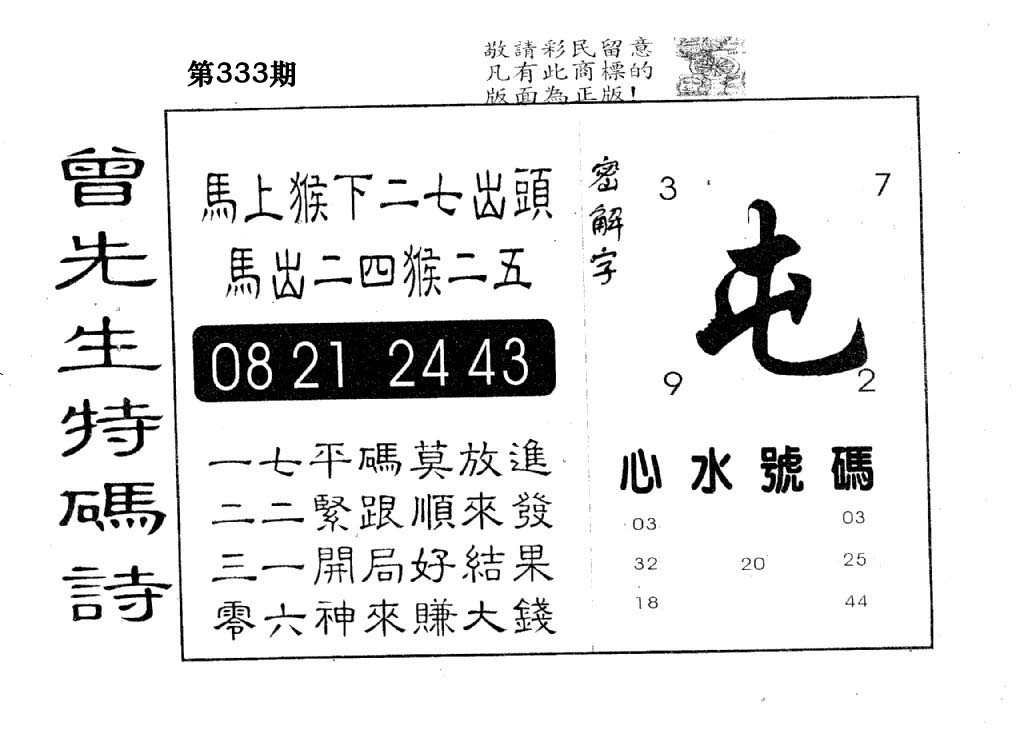 第333期
敬請彩民留意
凡有此商標的
版面為正版!
曾先生特碼詩
馬上猴下二七出頭
馬出二四猴二五
08 21 24 43
一七平碼莫放進
二二緊跟順來發
三一開局好結果
零六神來賺大錢
密解字
3 7
屯
9 2
心水號碼
03 03
32 20 25
18 44